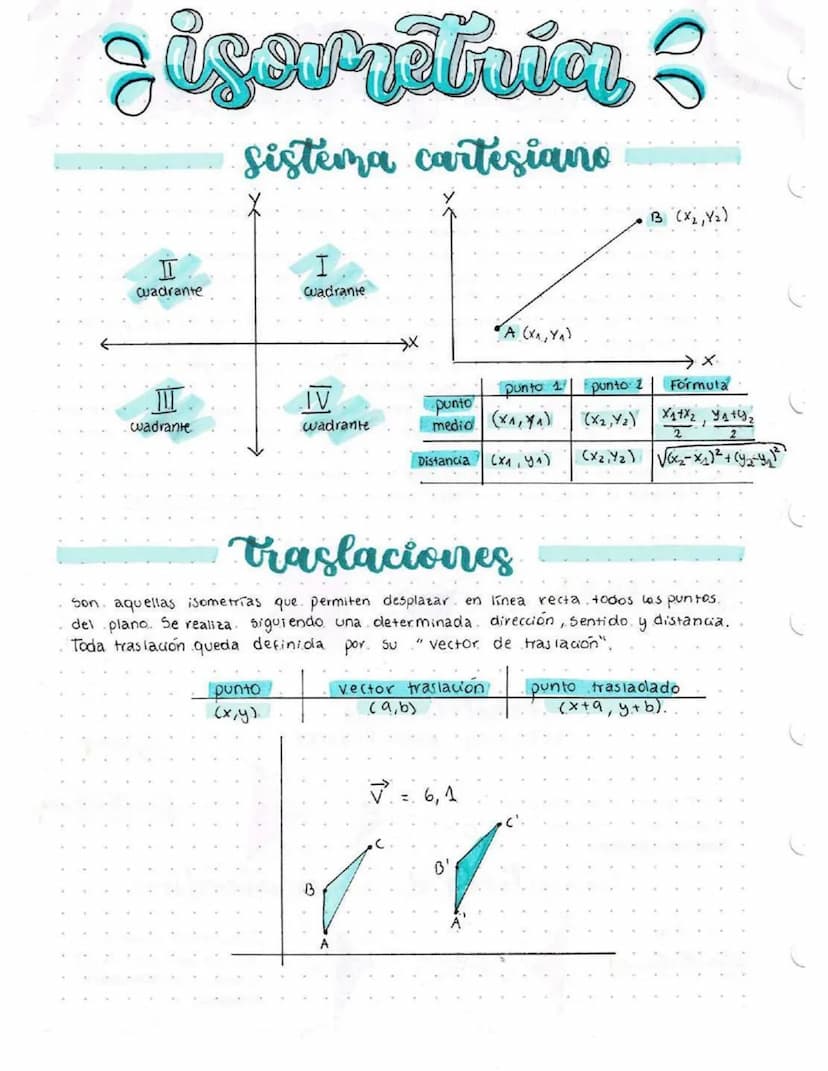 isometría
sistema cartesiano
Y
II
cuadrante
I
cuadrante
X
III
cuadrante
IV
cuadrante
Y
B (x₂, y₂)
A (x₁, y₁)
X
punto 1 punto 2 Fórmula
punto medio (x₁, y₁) (x₂, y₂) x₁+x₂/2 , y₁+y₂/2
Distancia (x₁, y₁) (x₂, y₂) √(x₂-x₁)²+(y₂-y₁)²
traslaciones
Son aquellas isometrías que permiten desplazar en línea recta todos los puntos
del plano. Se realiza siguiendo una determinada dirección, sentido y distancia.
Toda traslación queda definida por su "vector de traslación".
punto vector traslación punto trasladado
(x,y) (a,b) (x+a, y+b).
V⃗ = 6,1
C
B
A
C'
B'
A'